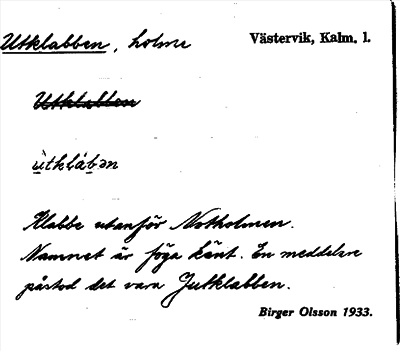 Utklabben, holme
Västervik, Kalm. l.
Utklabben
ùtklàb̲ən
Klabbe utanför Notholmen.
Namnet är föga känt. En meddelare
påstod det vara Jutklabben.
Birger Olsson 1933.